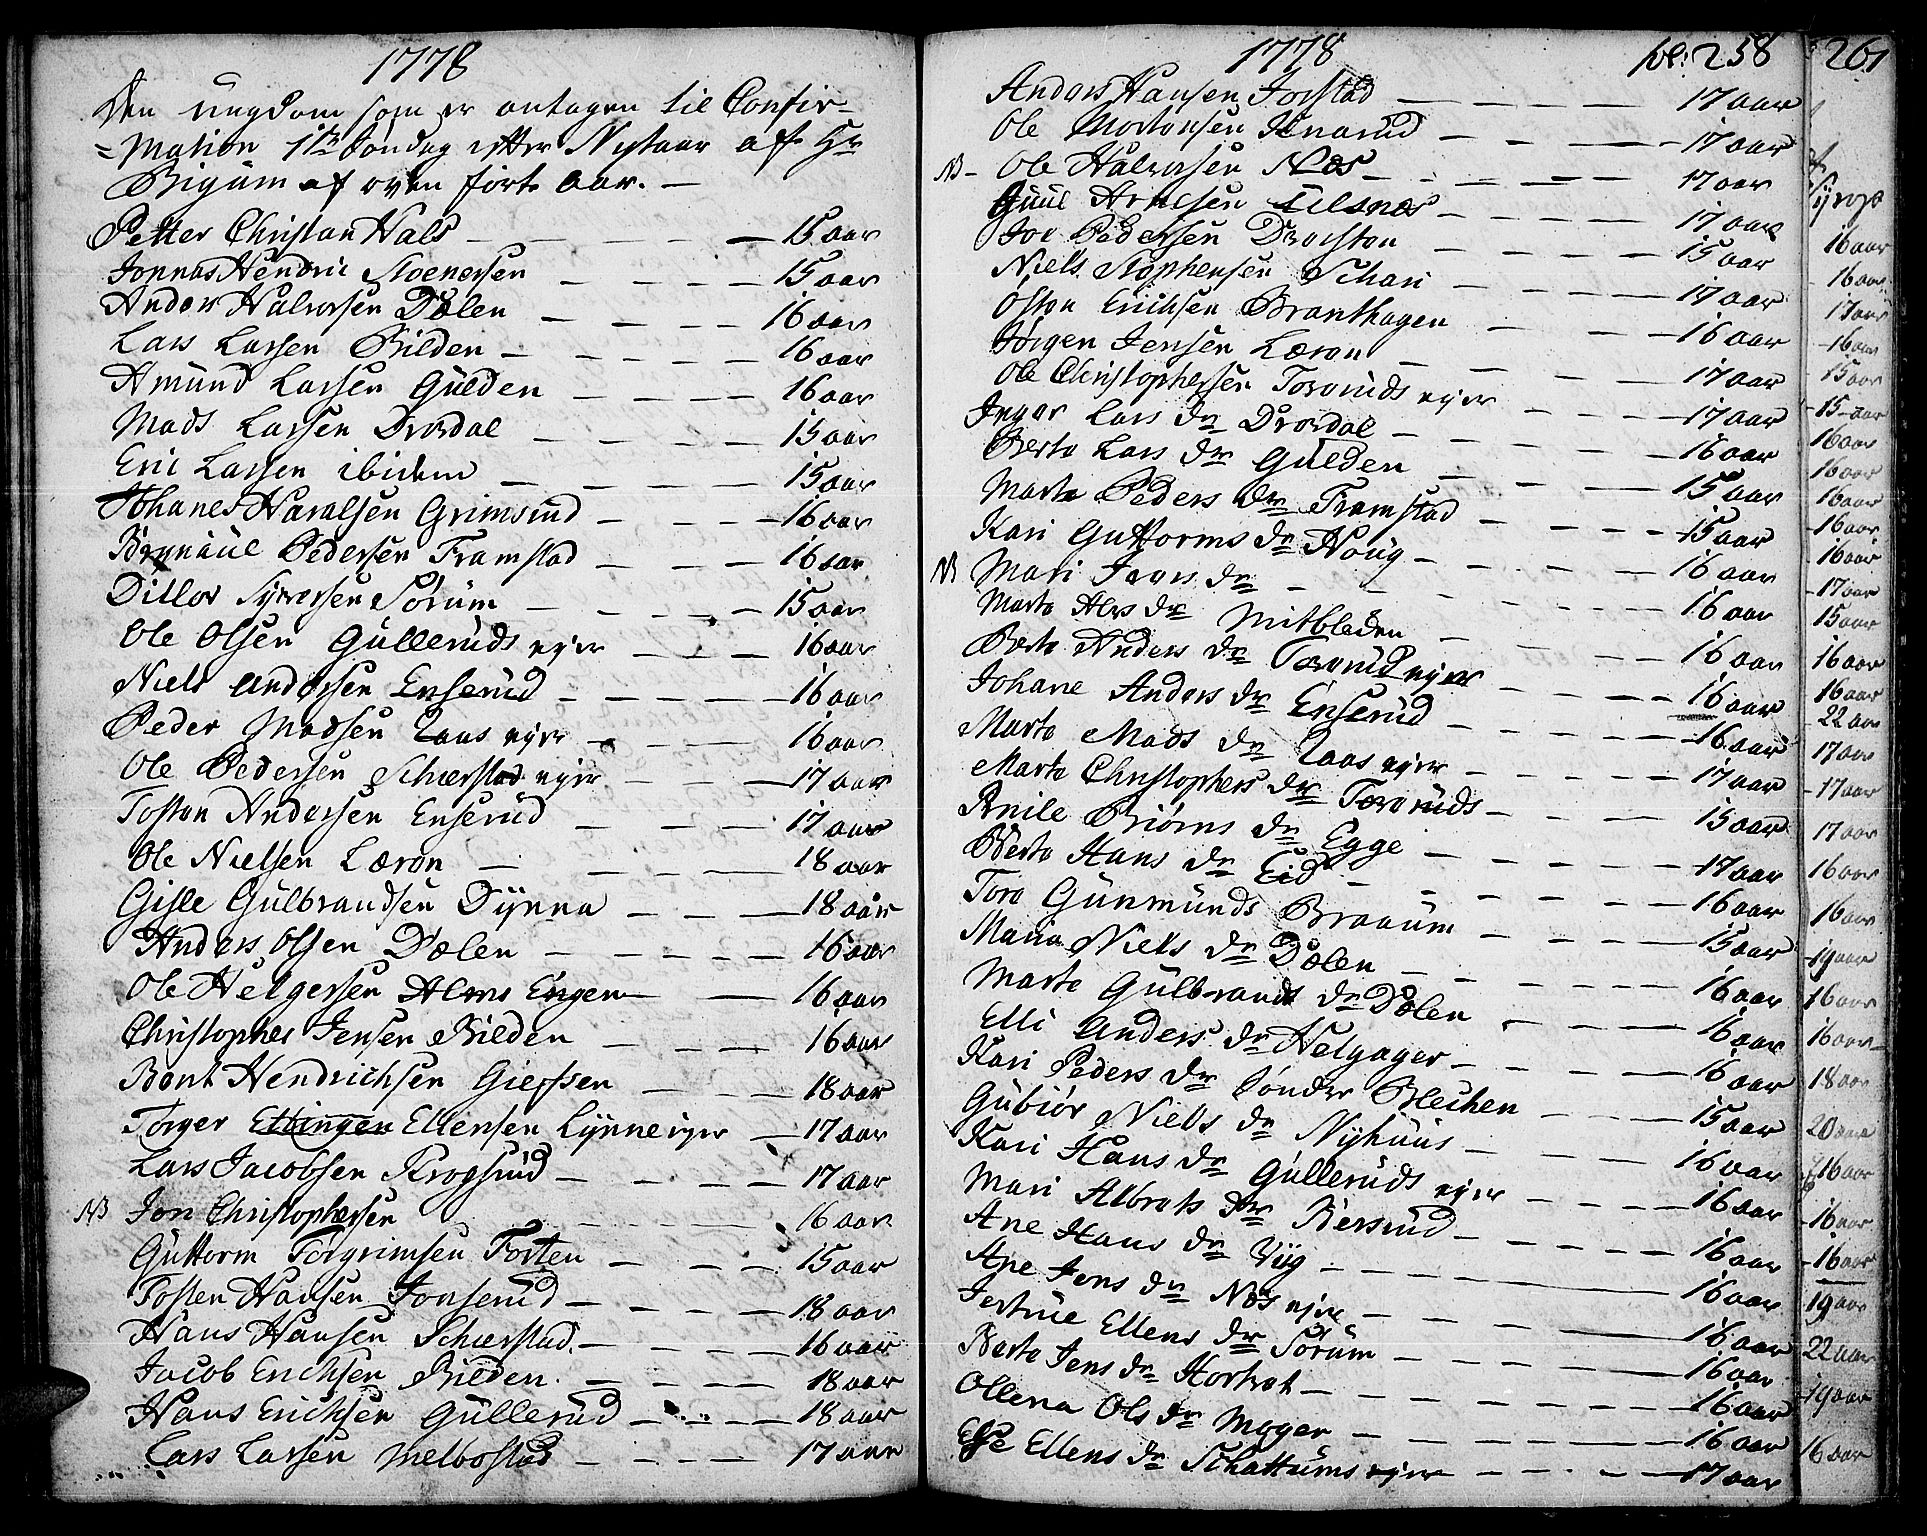 1778
Den Ungdom som er antagen til Confir=
=Mation 1te Søndag efter Nytaar af Hr
Bigum af oven førte Aar. —
Petter Christian Hals — 15 aar
Jonnas Hendric Stoenersen — 15 aar
Anders Halvorsen Dælen — 16 aar
Lars Larsen Bilden — 16 aar
Amund Larsen Gulden — 16 aar
Mads Larsen Dværdal — 15 aar
Eric Larsen ibidem — 15 aar
Johanes Haralsen Grimsrud — 16 aar
Brynnul Pedersen Framstad — 16 aar
Ditlov Syversen Sørum — 15 aar
Ole Olsen Gulleruds ejer — 16 aar
Niels Andersen Enserud — 16 aar
Peder Madsen Raas ejer — 16 aar
Ole Pedersen Schierstad ejer — 17 aar
Tosten Andersen Enserud — 17 aar
Ole Nielsen Læren — 18 aar
Gisle Gulbrandsen Dynna — 18 aar
Anders Olsen Dælen — 16 aar
Ole Helgersen Alms Engen — 16 aar
Christopher Jensen Bilden — 16 aar
Bent Hendrichsen Giefsen — 18 aar
Torger Ellensen Lynne ejer — 17 aar
Lars Jacobsen Krogsrud — 17 aar
NB Jon Christophersen — 16 aar
Guttorm Torgrimsen Forten — 15 aar
Tosten Hansen Jonserud — 18 aar
Hans Hansen Schierstad — 16 aar
Jacob Erichsen Bilden — 18 aar
Hans Erichsen Gullerud — 18 aar
Lars Larsen Melbostad — 17 aar
1778 pl: 258
Anders Hansen Jorstad — 17 aar
Ole Mortensen Knarud — 17 aar
NB — Ole Halvorsen Næs — 17 aar
Guul Arnesen Ulsnæs — 17 aar
Joe Pedersen — 15 aar
Niels Stephensen Schari — 17 aar
Osten Erichsen Branthagen — 16 aar
Jørgen Jensen Læren — 17 aar
Ole Christophersen Toveruds ejer — 17 aar
Inger Lars dr Dværdal — 16 aar
Berte Lars dr Gulden — 15 aar
Marte Peders dr Framstad — 15 aar
Kari Guttorms dr Houg — 16 aar
NB Mari Ivers dr — 16 aar
Marte Alvs dr Mitbleden — 16 aar
Berte Anders dr Toverud ejer — 16 aar
Johane Anders dr Enserud — 16 aar
Marte Mads dr Raas ejer — 17 aar
Marte Christophers dr Toveruds — 15 aar
Rnile Biørns dr Egge — 17 aar
Berte Hans dr Eid — 16 aar
Tore Gunmunds Braaum — 15 aar
Maria Niels dr Dælen — 16 aar
Marte Gulbrands dr Dælen — 16 aar
Elli Anders dr Helgager — 16 aar
Kari Peders dr Sønder Blechen — 15 aar
Gubiør Niels dr Nyhuus — 16 aar
Kari Hans dr Gulleruds ejer — 16 aar
Mari Albrets dr Biersrud — 16 aar
Ane Hans dr — 16 aar
Ane Jens dr Næs ejer — 16 aar
Jertrue Ellens dr Sørum — 16 aar
Berte Jens dr Hortvet — 16 aar
Ollena Ols dr Moger — 16 aar
Else Ellens dr Schattums ejer — 17 aar
261
16 aar
16 aar
17 aar
16 aar
15 aar
15 aar
16 aar
16 aar
16 aar
16 aar
16 aar
17 aar
15 aar
16 aar
16 aar
22 aar
17 aar
17 aar
17 aar
16 aar
16 aar
19 aar
16 aar
16 aar
18 aar
20 aar
16 aar
16 aar
16 aar
19 aar
22 aar
19 aar
16 aar